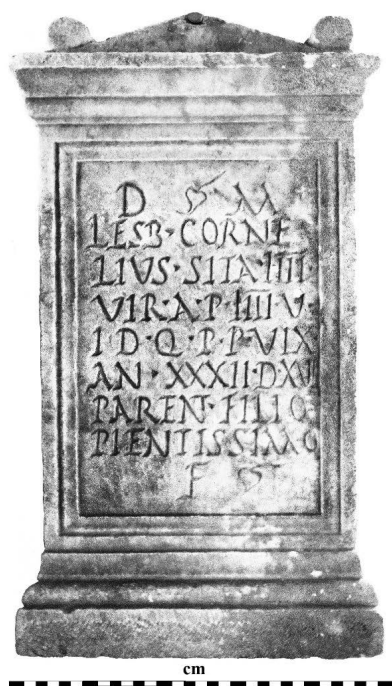 D M
LESB·CORNE
LIVS·SITA·IIII·
VIR·A·P·IIII V·
I·D·Q·P·P·VIX
AN·XXXII·D·XII
PARENT·FILIO
PIENTISSIMO
F
cm